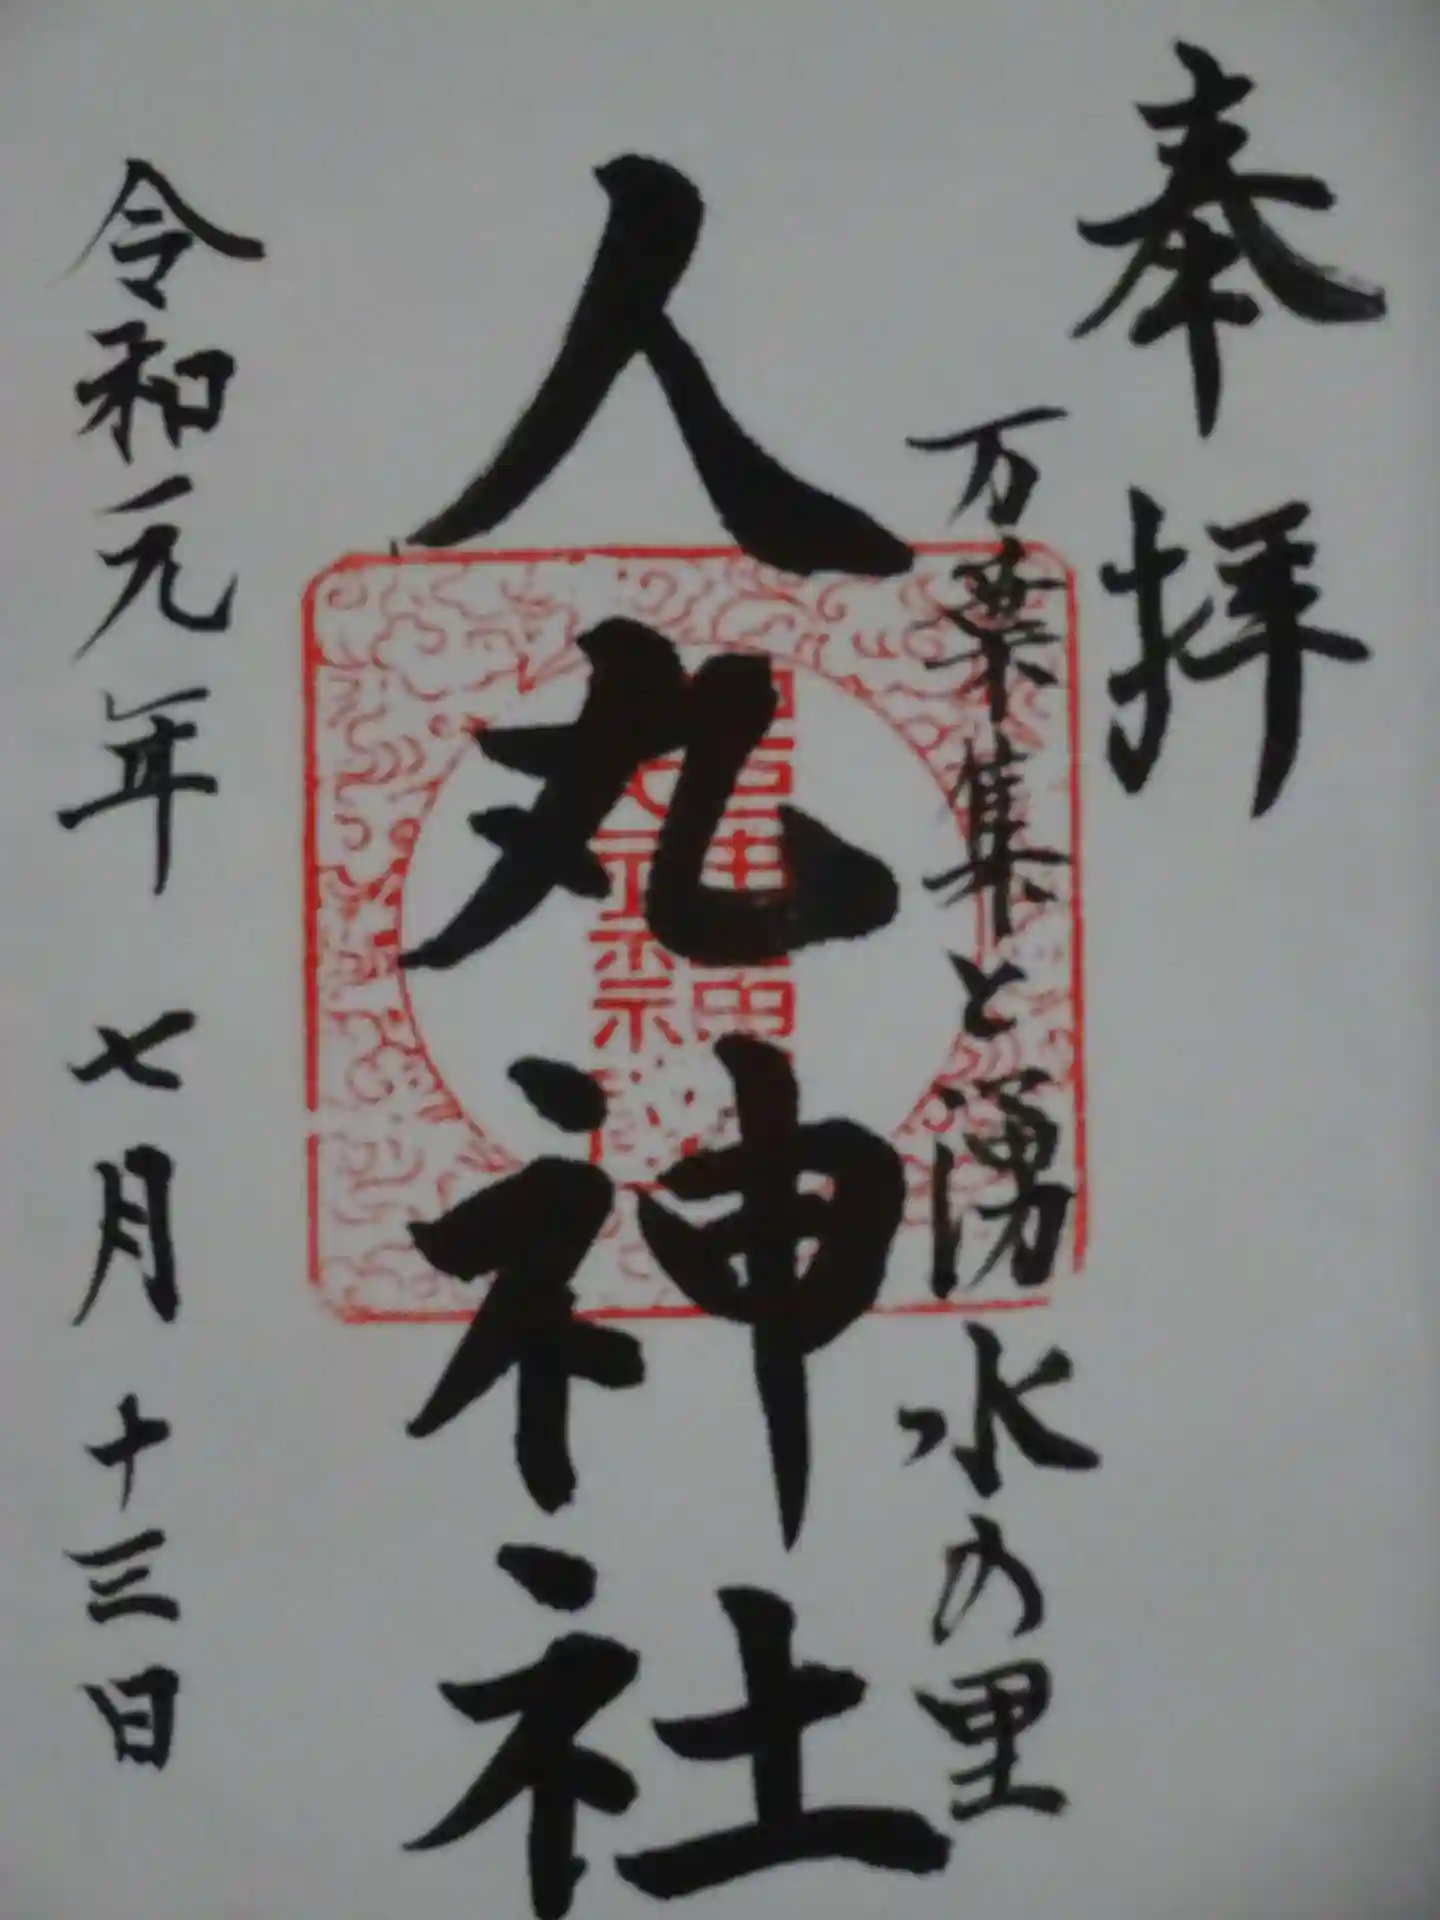 奉拝
万葉集と湧水の里
人丸神社
令和元年 七月十三日